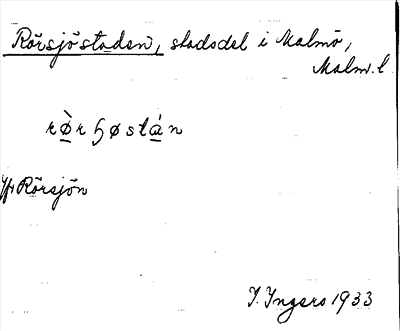 Rörsjöstaden, stadsdel i Malmö,
Malm. l.
rø̀rɧøstán
Jfr Rörsjön
I. Ingers 1933